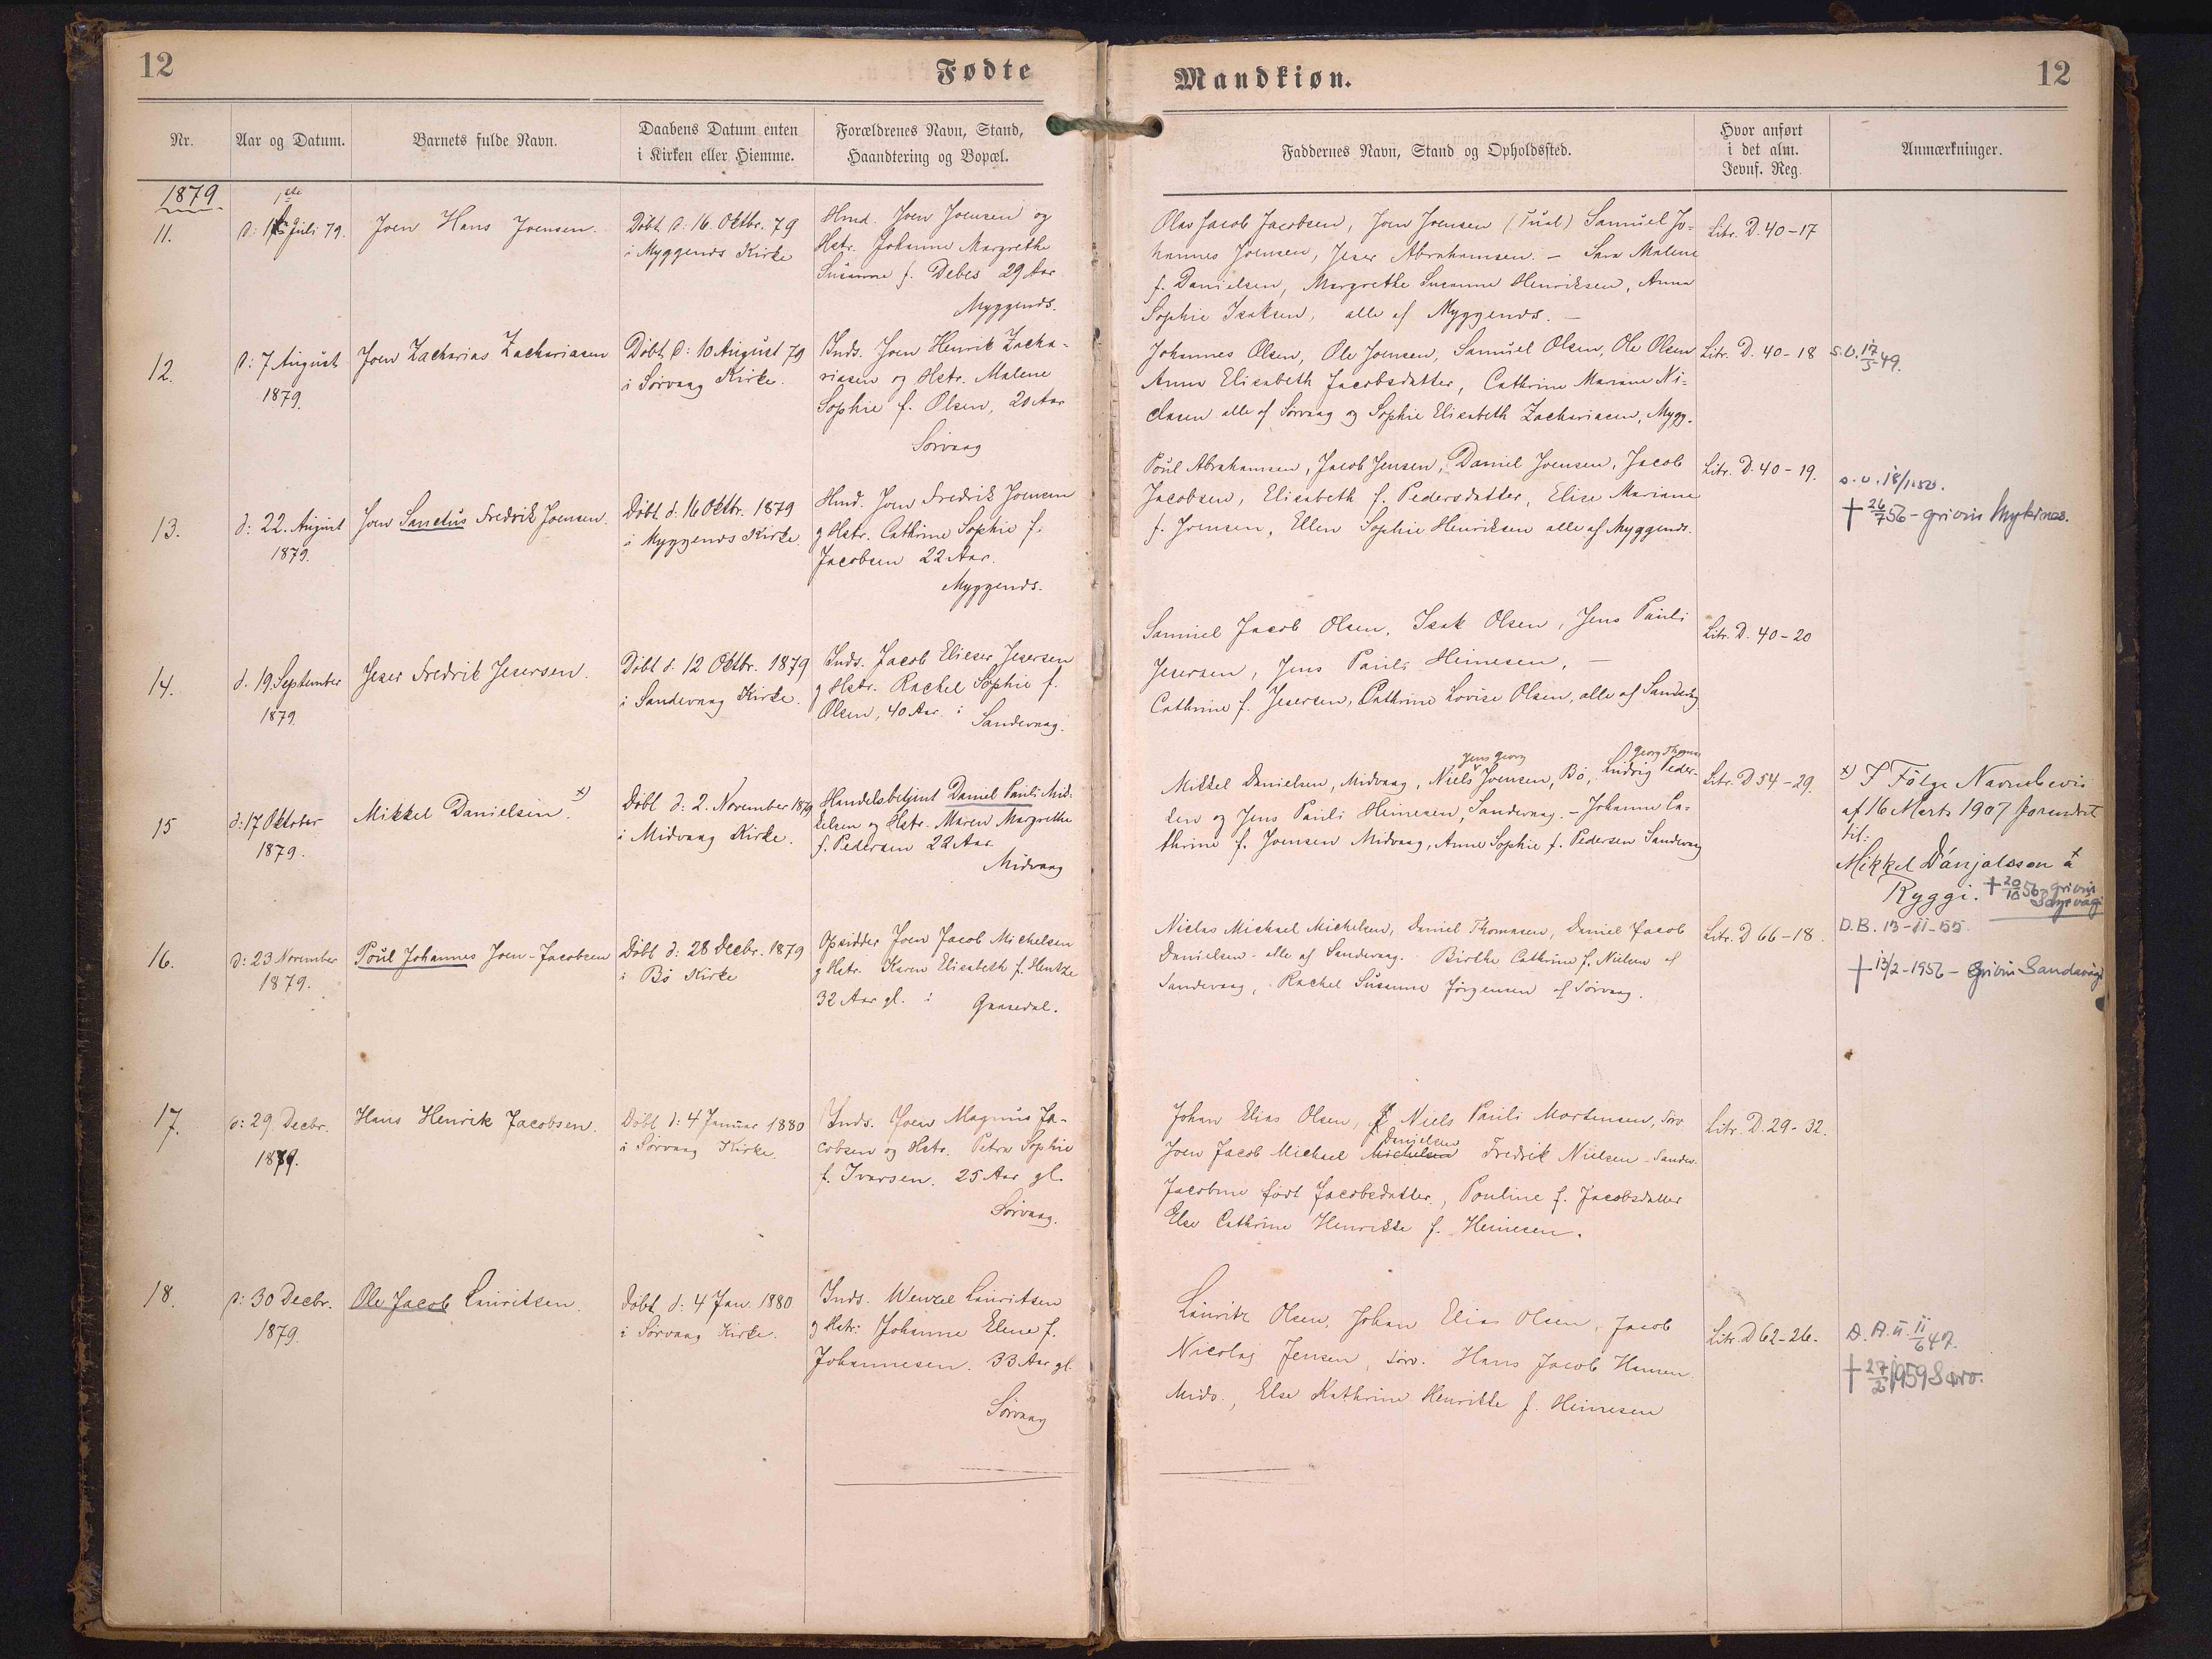 12
Fødte
Mandkiøn.
12
Nr.
Aar og Datum.
Barnets fulde Navn.
Daabens Datum enten
i Kirken eller Hiemme.
Forældrenes Navn, Stand,
Haandtering og Bopæl.
Faddernes Navn, Stand og Opholdssted.
Hvor anført
i det alm.
Jevnf. Reg.
Anmærkninger.
1879
11.
1ste
Juli 79.
Joen Hans Joensen.
Döbt d: 16 Oktbr. 79
i Myggenæs Kirke
Hmd. Joen Joensen og
Hstr. Johanne Margrethe
Susanne f. Debes 29 Aar
Myggenæs.
Olas Jacob Jacobsen, Joen Joensen Samuel Jo-
hannes Joensen, Jeser Abrahamsen. - Sara Malene
f. Danielsen, Margrethe Susanne Henriksen, Anna
Sophie Isaksen, alle af Myggenæs. -
Litr. D. 40-17
12.
d: 7 August
1879.
Joen Zacharias Zachariasen
Döbt d: 10 August 79
i Sörvaag Kirke.
Inds. Joen Henrik Zacha-
riasen og Hstr. Malene
Sophie f. Olsen, 20 Aar
Sörvaag
Johannes Olsen, Ole Joensen, Samuel Olsen, Ole Olsen
Anna Elisabeth Jacobsdatter, Cathrine Mariane Ni-
clasen alle af Sörvaag og Sophie Elisabeth Zachariasen, Mygg.
Litr. D. 40-18
S.U. 17/5 49.
13.
d: 22. August
1879.
Joen Sanctus Fredrik Joensen.
Döbt d: 16 Oktbr. 1879
i Myggenæs Kirke
Hmd. Joen Fredrik Joensen
g Hstr. Cathrine Sophie f.
Jacobsen 22 Aar.
Myggenæs.
Poul Abrahamsen, Jacob Jensen, Daniel Joensen, Jacob
Jacobsen, Elisabeth f. Pedersdatter, Elise Mariane
f. Joensen, Ellen Sophie Henriksen alle af Myggenæs.
Litr. D. 40-19.
s.u. 18/1.50.
† 26/7 56 - grivin Mykines.
14.
d. 19. September
1879.
Jeser Fredrik Jesersen.
Döbt d. 12 Oktbr. 1879
i Sandevaag Kirke.
Inds. Jacob Elieser Jesersen
g Hstr. Rachel Sophie f.
Olsen, 40 Aar. i Sandevaag.
Samuel Jacob Olsen, Isak Olsen, Jens Pauli
Jesersen, Jens Pauli Heinesen, -
Cathrine f. Jesersen, Cathrine Lovise Olsen, alle af Sandevaag
Litr. D. 40-20
15
d: 17 Oktober
1879.
Mikkel Danielsen. x)
Döbt d: 2. November 1879
i Midvaag Kirke.
Handelsbetjent Daniel Pauli Mik-
kelsen og Hstr. Maren Margrethe
f. Pedersen 22 Aar
Midvaag
Jens Georg
Georg Thomas
Mikkel Danielsen, Midvaag, Niels Joensen, Bö, Ludvig Peder-
sen og Jens Pauli Heinesen, Sandevaag. - Johanne Ca-
thrine f. Joensen Midvaag, Anne Sophie f. Pedersen Sandevaag
Litr. D 54-29.
x) I Følge Navnebevis
af 16 Marts 1907 forandret
til:
Mikkel Dánjalsson á
Ryggi. † 20/10 56 grivin
16.
d: 23 November
1879.
Poul Johannes Joen-Jacobsen
Döbt d: 28 Decbr. 1879
i Bö Kirke
Opsidder Joen Jacob Michelsen
g Hstr. Karen Elisabeth f. Hentze
32 Aar gl. i Gaasedal.
Niclas Michael Michelsen, Daniel Thomasen, Daniel Jacob
Danielsen - alle af Sandevaag. Birthe Cathrine f. Nielsen af
Sandevaag, Rachel Susanne Jörgensen af Sörvaag.
Litr. D 66-18.
D.B. 13-11-55.
† 13/2-1956 - Grivin Sandavági
17.
d: 29 Decbr.
1879.
Hans Henrik Jacobsen.
Döbt d: 4 Januar 1880
i Sörvaag Kirke.
Inds. Joen Magnus Ja-
cobsen og Hstr. Petra Sophie
f. Ivarsen. 25 Aar gl.
Sörvaag.
Johan Elias Olsen, Niels Pauli Mortensen, Sörv.
Danielsen
Joen Jacob Michael Michelsen Fredrik Nielsen Sandev.
Jacobine födt Jacobsdatter, Pouline f. Jacobsdatter
Else Cathrine Henrikke f. Heinesen.
Litr. D. 29-32.
18.
d: 30 Decbr.
1879.
Ole Jacob Lauritsen.
Döbt d: 4 Jan. 1880
i Sörvaag Kirke.
Inds. Wenzel Lauritsen
g Hstr: Johanne Elene f.
Johannesen. 33 Aar gl.
Sörvaag
Lauritz Olsen, Johan Elias Olsen, Jacob
Nicolaj Jensen, Sörv. Hans Jacob Hansen
Midv., Else Kathrine Henrikke f. Heinesen
Litr. D 62-26.
D.A.u. 11/6 47.
† 27/2 1959 Sørv.